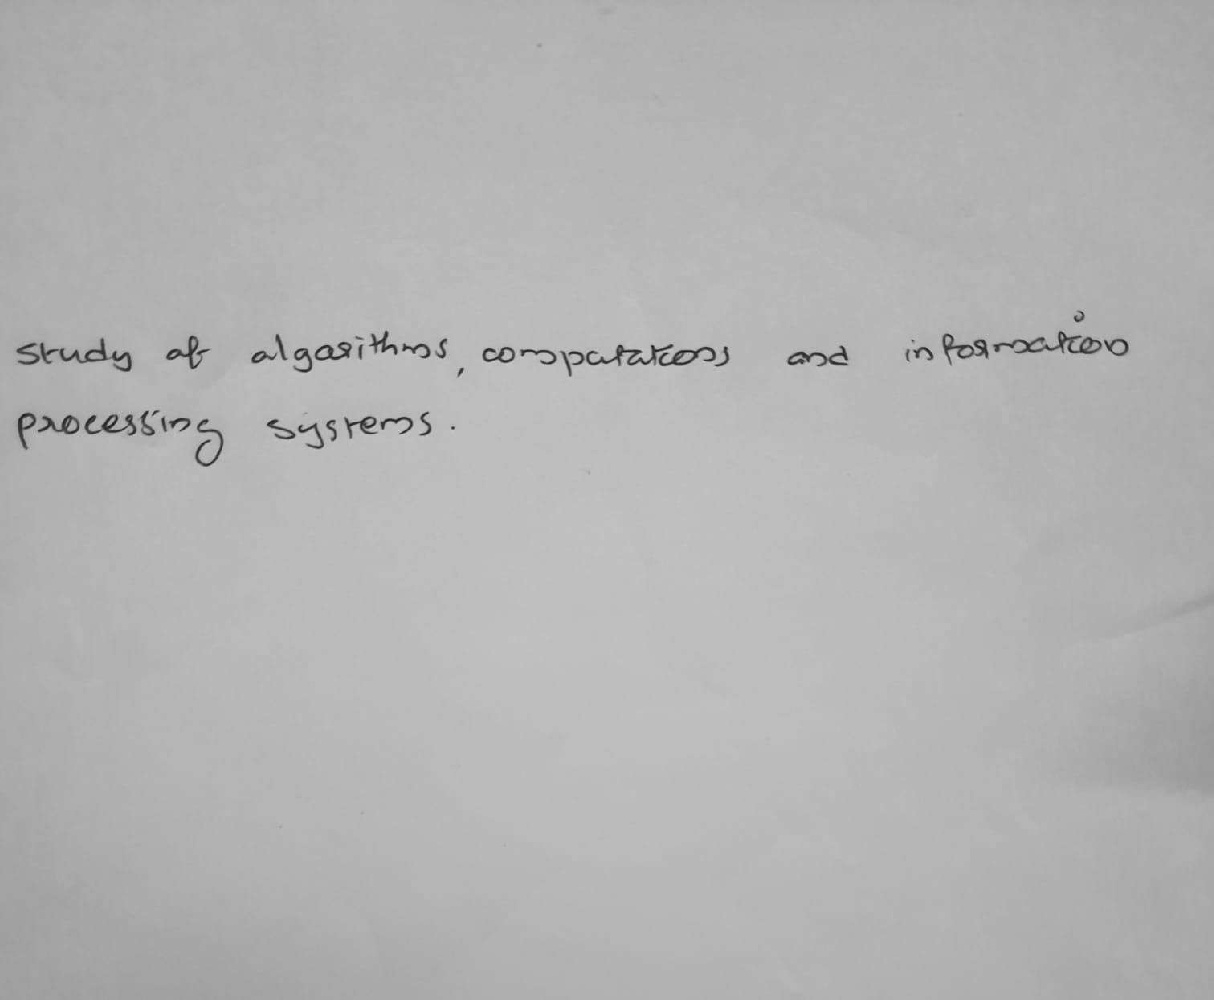 study of algorithms, computations and information
processing systems.